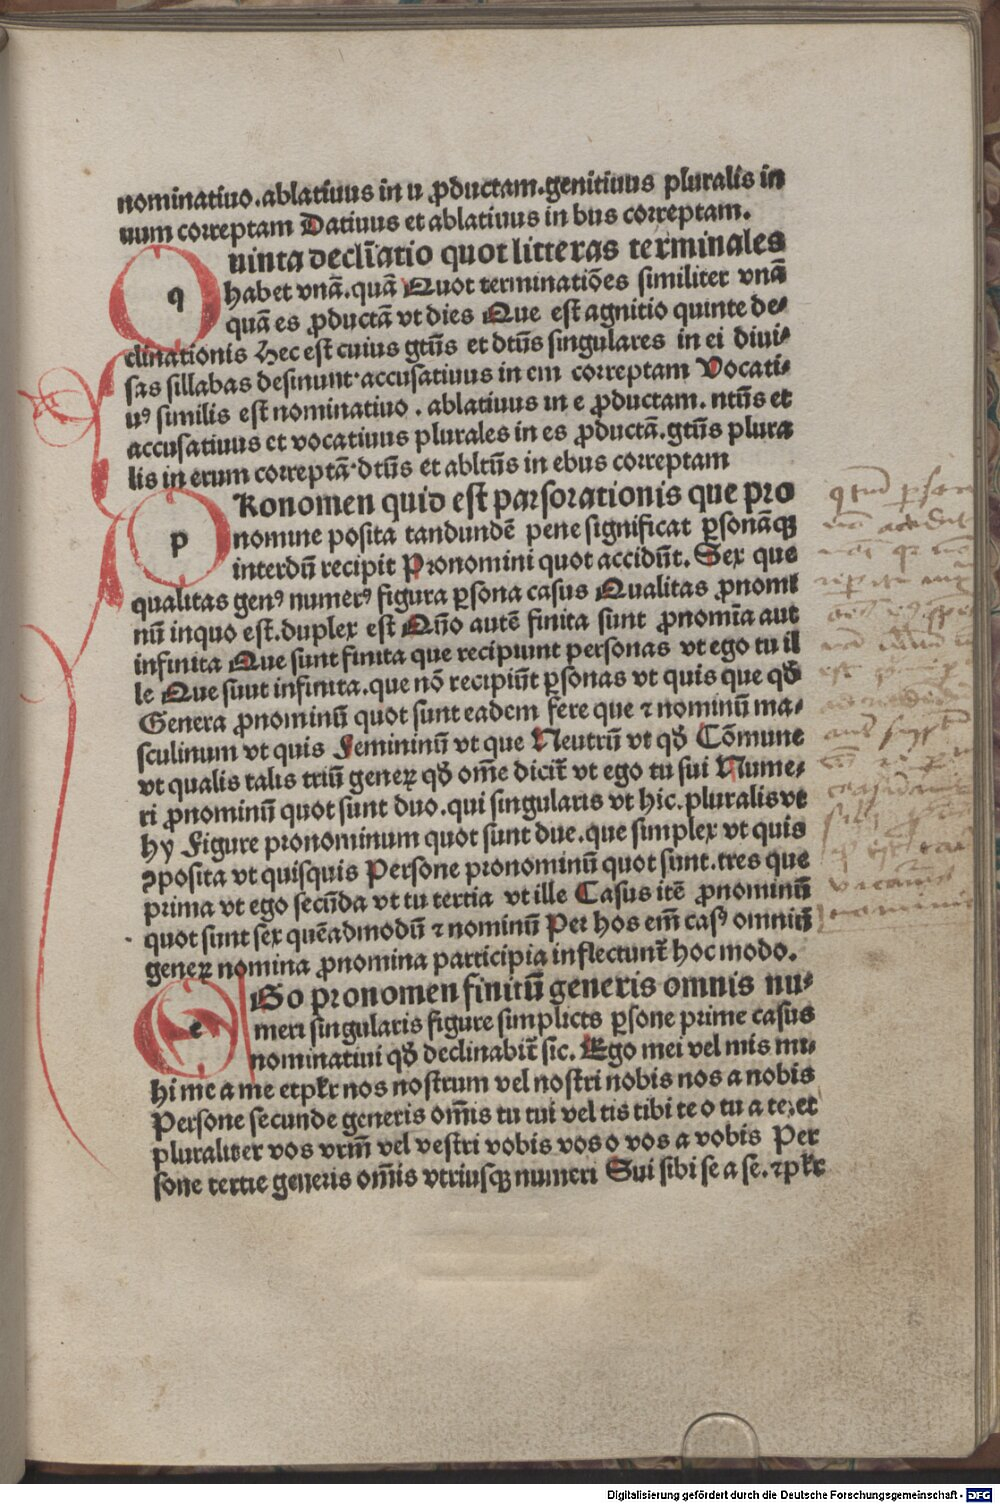 nominatiuo.ablatiuus in u ꝓductam.genitiuus pluralis in
uum correptam Datiuus et ablatiuus in bus correptam.
q uinta decl̄iatio quot litteras terminales
habet vnã.quã Quot terminatiões similiter vnã
quã es ꝓductã vt dies Que est agnitio quinte de⸗
clinationis Hec est cuius gtūs et dtūs singulares in ei diui⸗
sas sillabas desinunt·accusatiuus in em correptam Vocati⸗
uꝰ similis est nominatiuo . ablatiuus in e ꝓductam. ntūs et
accusatiuus et vocatiuus plurales in es ꝓductã.gtūs plura
lis in erum correptã·dtūs et abltūs in ebus correptam
p Ronomen quid est parsorationis que pro
nomine posita tandundē pene significat ꝑsonãqꝫ
interdū recipit Pronomini quot accidūt. Sex que
qualitas genꝰ numerꝰ figura ꝑsona casus Qualitas ꝓnomi
nū inquo est.duplex est Qño autē finita sunt ꝓnomīa aut
infinita Que sunt finita que recipiunt personas vt ego tu il
le Que suut infinita.que nõ recipiūt ꝑsonas vt quis que qð
Genera ꝓnominū quot sunt eadem fere que ⁊ nominū ma⸗
sculinum vt quis Femininū vt que Neutrū vt qð Cõmune
vt qualis talis triū geneꝝ qð om̄e dicit̄ vt ego tu sui Nume⸗
ri ꝓnominū quot sunt duo.qui singularis vt hic.pluralis vt
hy Figure pronominum quot sunt due.que simplex vt quis
ꝯposita vt quisquis Persone pronominū quot sunt.tres que
prima vt ego secūda vt tu tertia vt ille Casus itē ꝓnominū
quot sunt sex quēadmodū ⁊ nominū Per hos em̄ casꝰ omniū
geneꝝ nomina ꝓnomina participia inflectunt̄ hoc modo.
e Go pronomen finitū generis omnis nu⸗
meri singularis figure simplicis ꝑsone prime casus
nominatiui qð declinabit̄ sic. Ego mei vel mis mi⸗
hi me a me etpl̄r nos nostrum vel nostri nobis nos a nobis
Persone secunde generis om̄is tu tui vel tis tibi te o tu a te.et
pluraliter vos vrm̄ vel vestri vobis vos o vos a vobis Per
sone tertie generis om̄is vtriusqꝫ numeri Sui sibi se a se. ⁊pl̄r
Digitalisierung gefördert durch die Deutsche Forschungsgemeinschaft - DFG